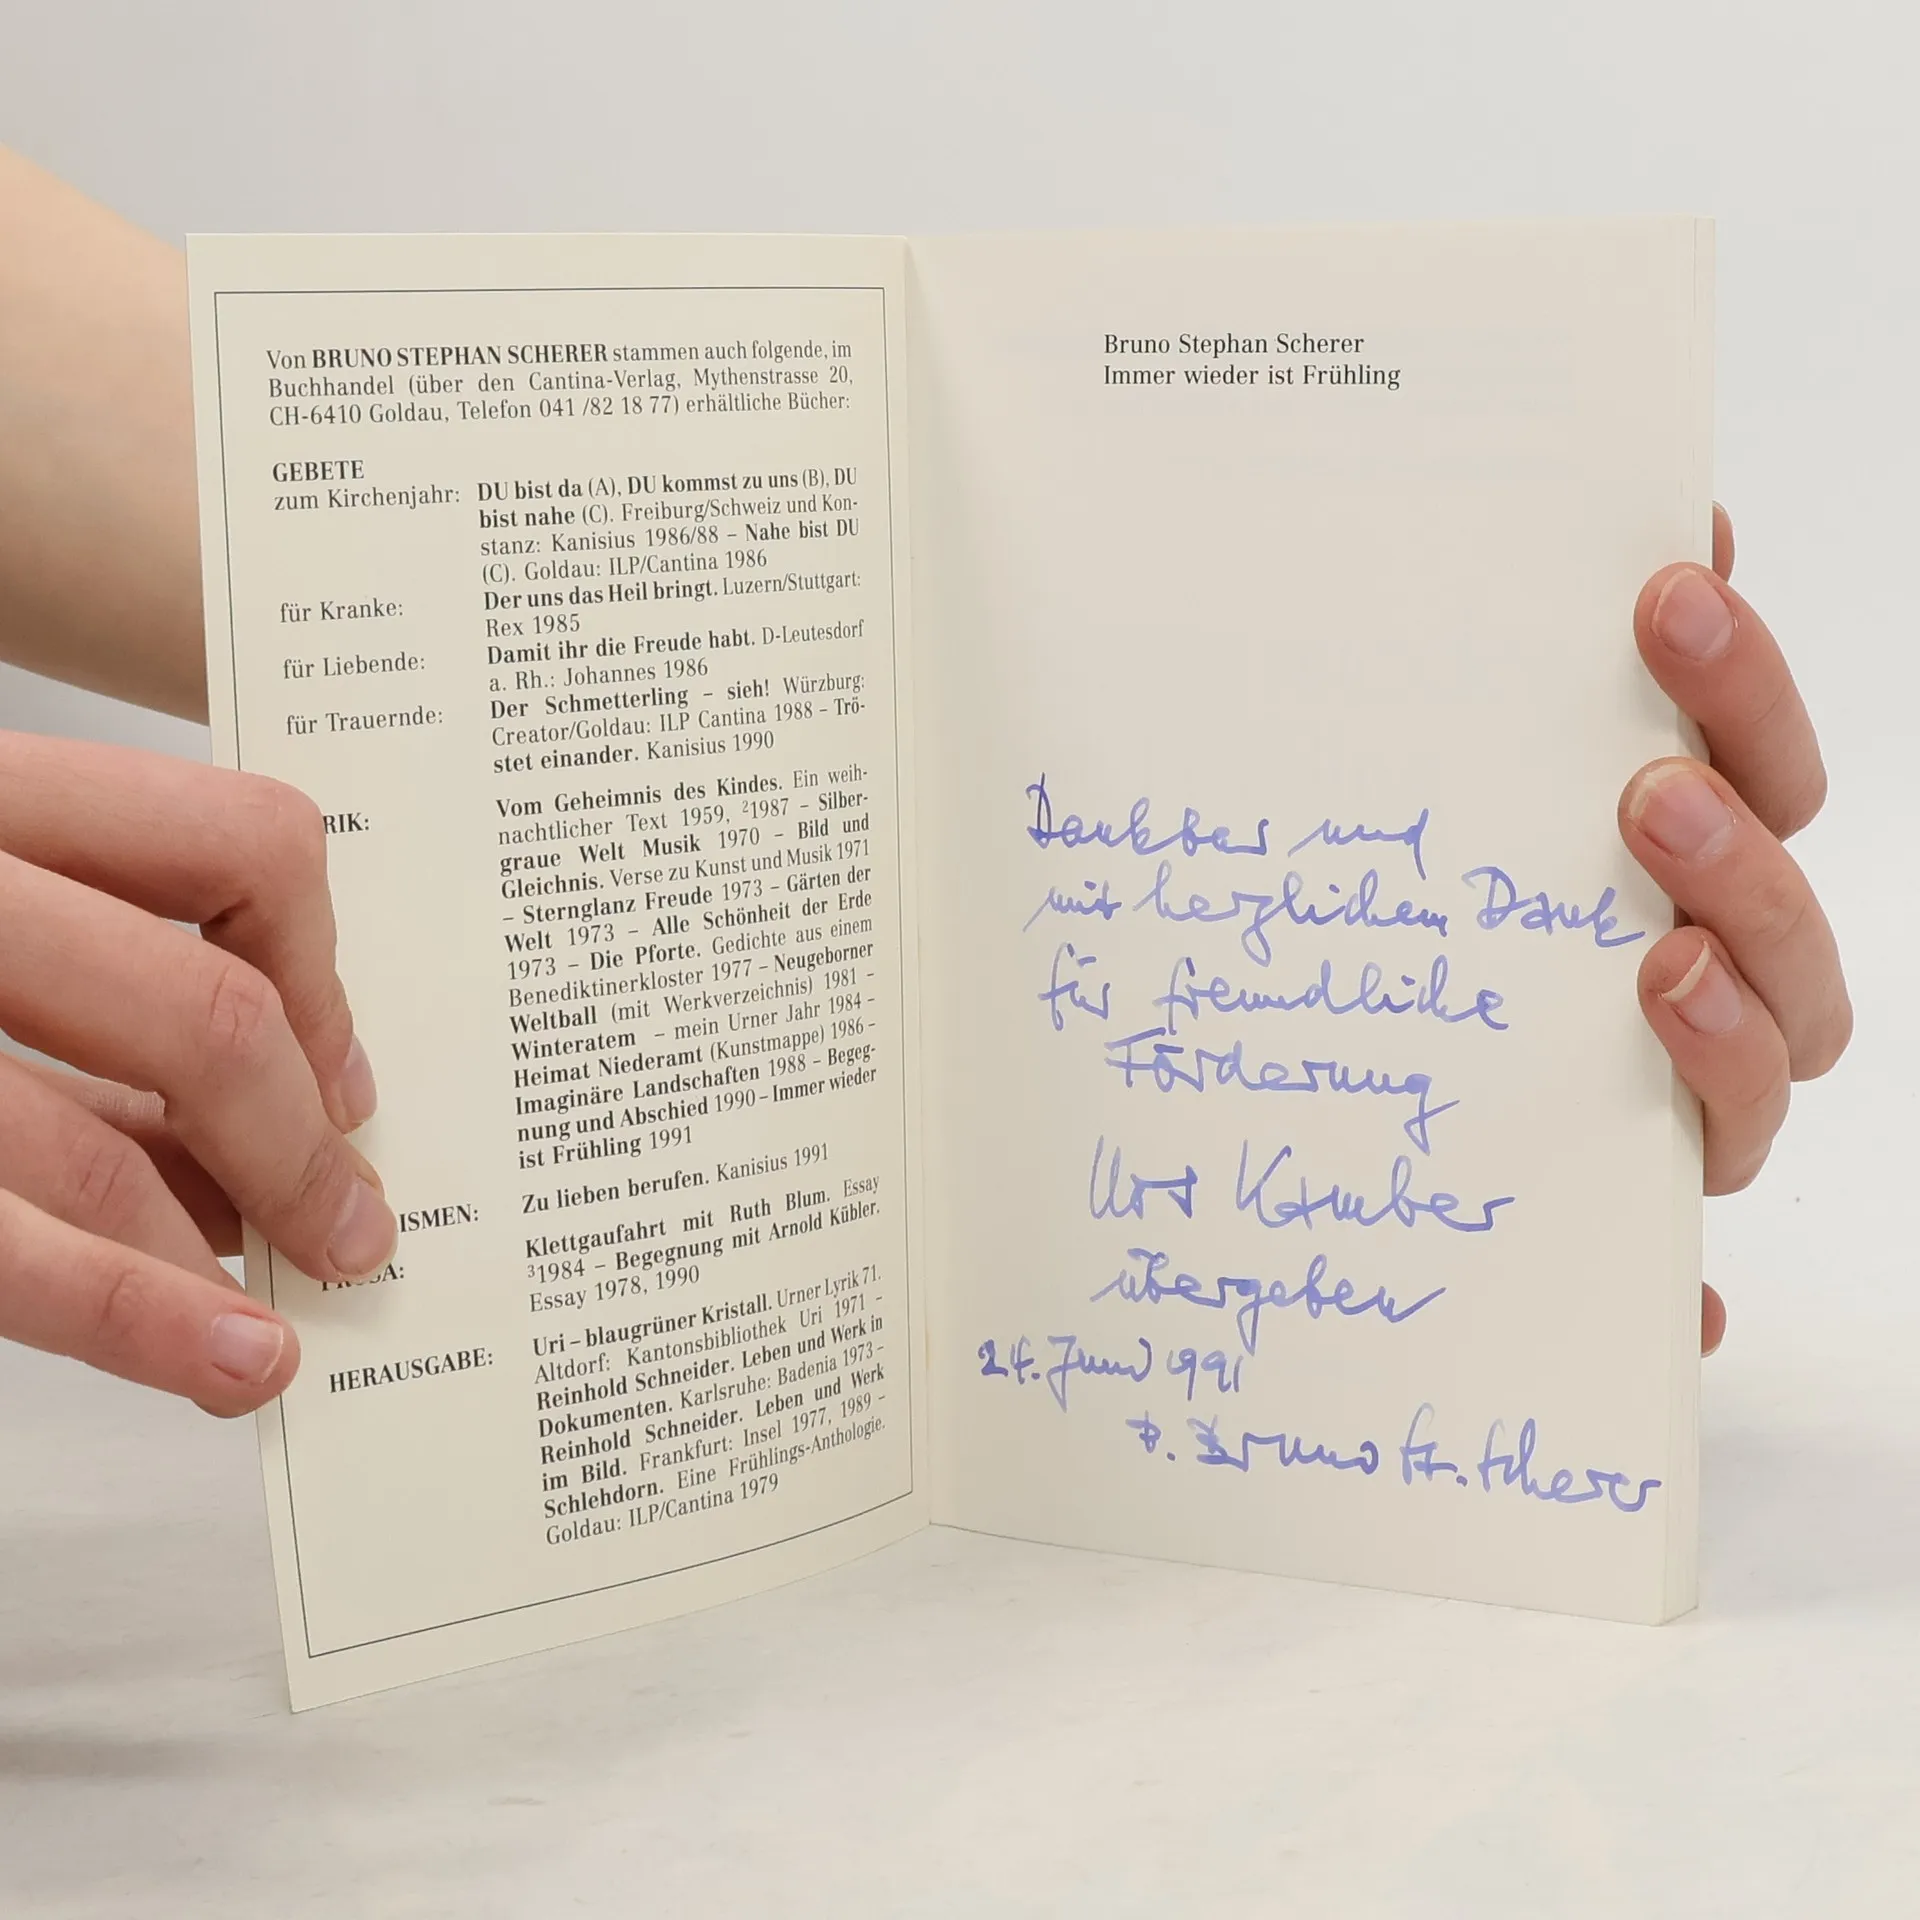 Von BRUNO STEPHAN SCHERER stammen auch folgende, im
Buchhandel (über den Cantina-Verlag, Mythenstrasse 20,
CH-6410 Goldau, Telefon 041 /82 18 77) erhältliche Bücher:
GEBETE
zum Kirchenjahr: DU bist da (A), DU kommst zu uns (B), DU
bist nahe (C). Freiburg/Schweiz und Kon-
stanz: Kanisius 1986/88 – Nahe bist DU
(C). Goldau: ILP/Cantina 1986
für Kranke: Der uns das Heil bringt. Luzern/Stuttgart:
Rex 1985
für Liebende: Damit ihr die Freude habt. D-Leutesdorf
a. Rh.: Johannes 1986
für Trauernde: Der Schmetterling – sieh! Würzburg:
Creator/Goldau: ILP Cantina 1988 – Trö-
stet einander. Kanisius 1990
RIK: Vom Geheimnis des Kindes. Ein weih-
nachtlicher Text 1959, ²1987 – Silber-
graue Welt Musik 1970 – Bild und
Gleichnis. Verse zu Kunst und Musik 1971
– Sternglanz Freude 1973 – Gärten der
Welt 1973 – Alle Schönheit der Erde
1973 – Die Pforte. Gedichte aus einem
Benediktinerkloster 1977 – Neugeborner
Weltball (mit Werkverzeichnis) 1981 –
Winteratem – mein Urner Jahr 1984 –
Heimat Niederamt (Kunstmappe) 1986 –
Imaginäre Landschaften 1988 – Begeg-
nung und Abschied 1990 – Immer wieder
ist Frühling 1991
ISMEN: Zu lieben berufen. Kanisius 1991
Klettgaufahrt mit Ruth Blum. Essay
³1984 – Begegnung mit Arnold Kübler.
Essay 1978, 1990
HERAUSGABE: Uri – blaugrüner Kristall. Urner Lyrik 71.
Altdorf: Kantonsbibliothek Uri 1971 –
Reinhold Schneider. Leben und Werk in
Dokumenten. Karlsruhe: Badenia 1973 –
Reinhold Schneider. Leben und Werk
im Bild. Frankfurt: Insel 1977, 1989 –
Schlehdorn. Eine Frühlings-Anthologie.
Goldau: ILP/Cantina 1979
Bruno Stephan Scherer
Immer wieder ist Frühling
Dankbar und
mit herzlichem Dank
für freundliche
Förderung
Urs Kamber
übergeben
24. Juni 1991
P. Bruno St. Scherer